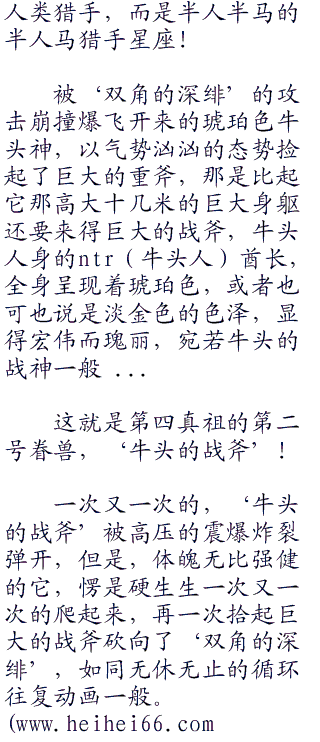 人类猎手，而是半人半马的
半人马猎手星座！
被‘双角的深绯’的攻
击崩撞爆飞开来的琥珀色牛
头神，以气势汹汹的态势捡
起了巨大的重斧，那是比起
它那高大十几米的巨大身躯
还要来得巨大的战斧，牛头
人身的ntr（牛头人）酋长，
全身呈现着琥珀色，或者也
可也说是淡金色的色泽，显
得宏伟而瑰丽，宛若牛头的
战神一般 ...
这就是第四真祖的第二
号眷兽，‘牛头的战斧’！
一次又一次的，‘牛头
的战斧’被高压的震爆炸裂
弹开，但是，体魄无比强健
的它，愣是硬生生一次又一
次的爬起来，再一次拾起巨
大的战斧砍向了‘双角的深
绯’，如同无休无止的循环
往复动画一般。
(www.heihei66.com